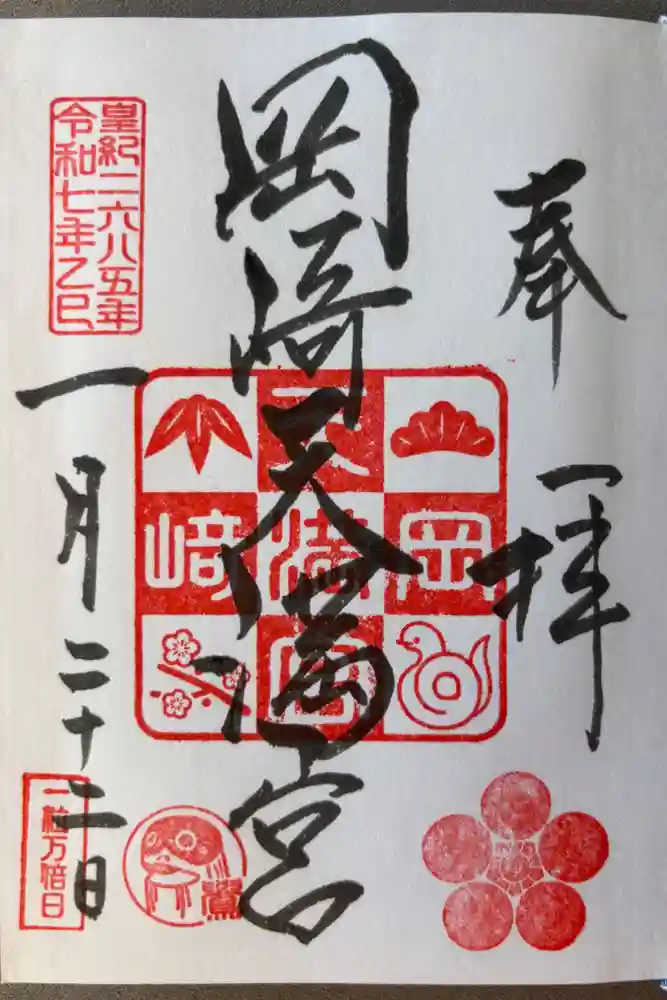 奉拝
岡崎天満宮
岡崎
天満宮
皇紀二六八五年
令和七年乙巳
一月二十二日
一粒万倍日
鷽